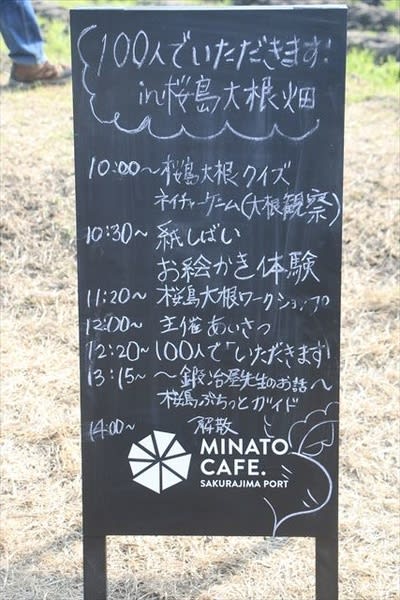 100人でいただきます!
in桜島大根畑
10:00~桜島大根クイズ
ネイチャーゲーム(大根観察)
10:30~紙しばい
お絵かき体験
11:20~桜島大根ワークショップ
12:00~主催あいさつ
12:20~100人で「いただきます!
13:15~~鍛冶屋先生のお話~
桜島ぶちっとガイド
14:00~解散
MINATO
CAFE.
SAKURAJIMA PORT